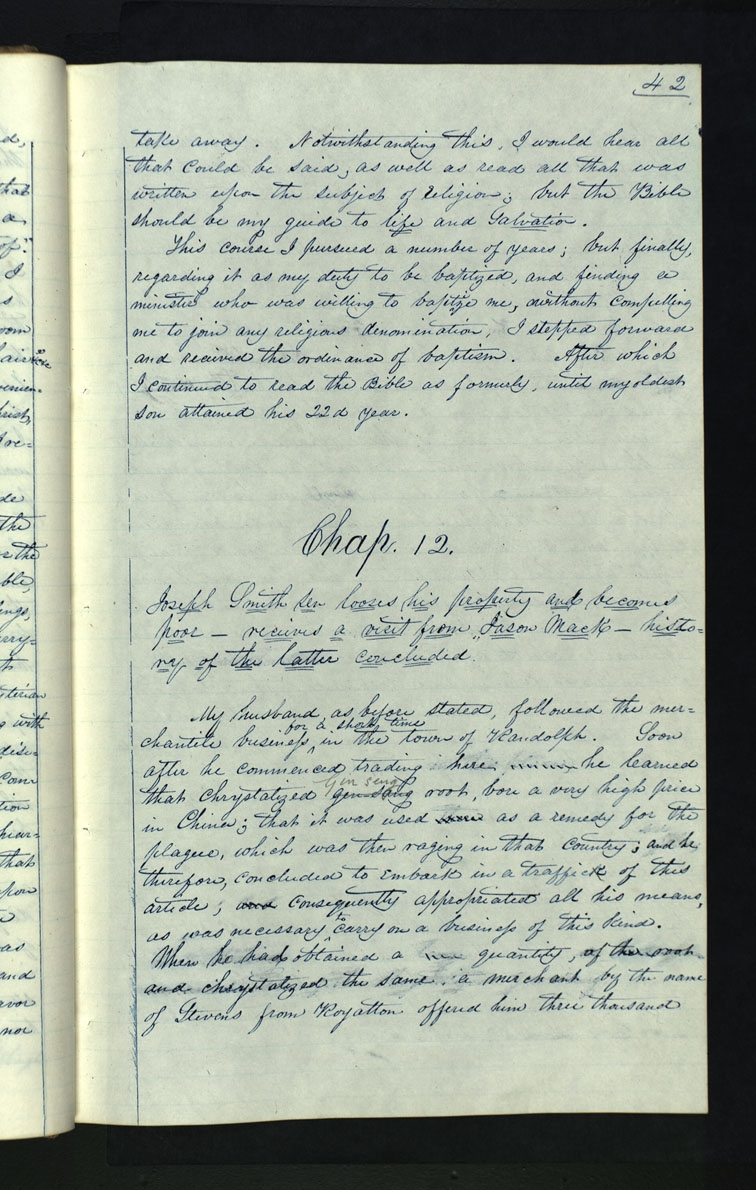 42
take away. Notwithstanding this, I would hear all
that could be said, as well as read all that was
written upon the subject of religion; but the Bible
should be my guide to life and Salvation.
This course I pursued a number of years; but finally,
regarding it as my duty to be baptized, and finding a
minister who was willing to baptize me, without compelling
me to join any religious denomination, I stepped forward
and received the ordinance of baptism. After which
I continued to read the Bible as formerly, until my oldest
son attained his 22d year.
Chap. 12.
Joseph Smith sen looses his property and becomes
poor — recieves a visit from, Jason Mack — histo=
ry of the latter concluded.
My husband, as before stated, followed the mer=
for a short time
chantile business, in the town of Randolph. Soon
after he commenced trading here he learned
Gin seng
that chrystalized gen sang root, bore a very high price
in China; that it was used as a remedy for the
plague, which was then raging in that country; and he,
therefore, concluded to embark in a traffick of this
article; and consequently appropriated all his means,
as was necessary to carry on a business of this kind.
When he had obtained a quantity, of the root
and chrystalized the same. a merchant by the name
of Stevens from Royalton offered him three thousand
d,
that
a
of."
I
s
oom
air
venien=
rist,
I re=
de
the
r the
ble,
ings,
erry=
terian
g with
disc=
come
tion
hear=
that
upon
as
and
avor
nor